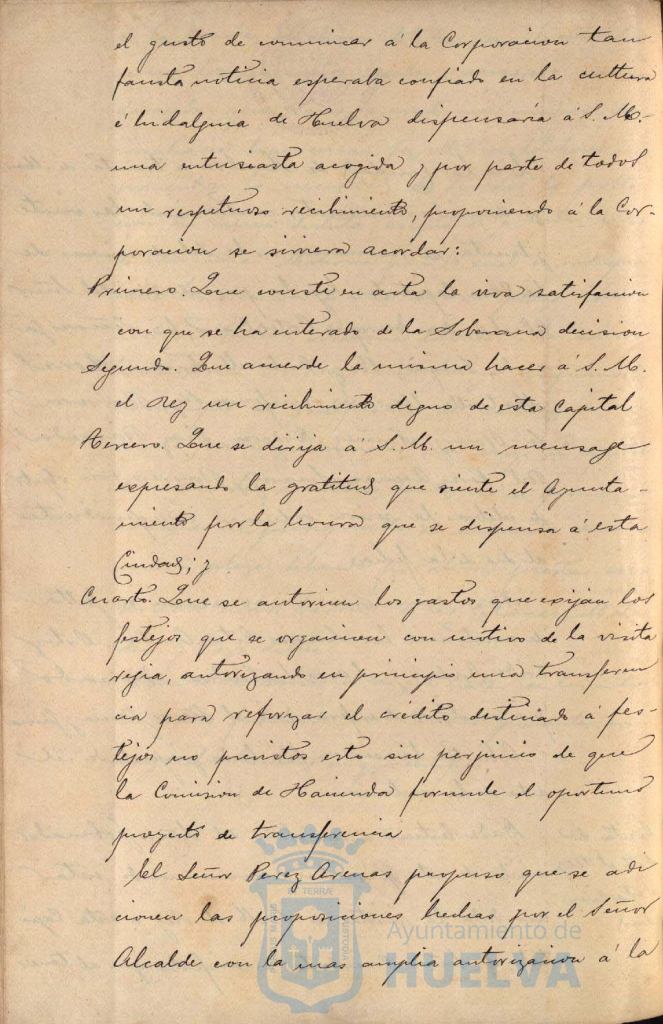 el gusto de comunicar á la Corporacion tan
fausta noticia esperaba confiado en la cultura
é hidalguia de Huelva dispensaria á S. M.
una entusiasta acogida y por parte de todos
un respetuoso recibimiento, proponiendo á la Cor-
poracion se sirviera acordar:
Primero. Que conste en acta la viva satisfaccion
con que se ha enterado de la Soberana decision
Segundo. Que acuerde la misma hacer á S. M.
el Rey un recibimiento digno de esta Capital
Tercero. Que se dirija á S. M. un mensage
expresando la gratitud que siente el Ayunta-
miento por la honra que se dispensa á esta
Ciudad; y
Cuarto. Que se autoricen los gastos que exijan los
festejos que se organicen con motivo de la visita
rejia, autorizando en principio una transferen
cia para reforzar el crédito destinado á fes-
tejos no previstos esto sin perjuicio de que
la Comision de Hacienda formule el oportuno
proyecto de transferencia
El Señor Perez Arenas propuso que se adi
cionen las proposiciones hechas por el Señor
Alcalde con la mas amplia autorizacion á la
Ayuntamiento de
HUELVA